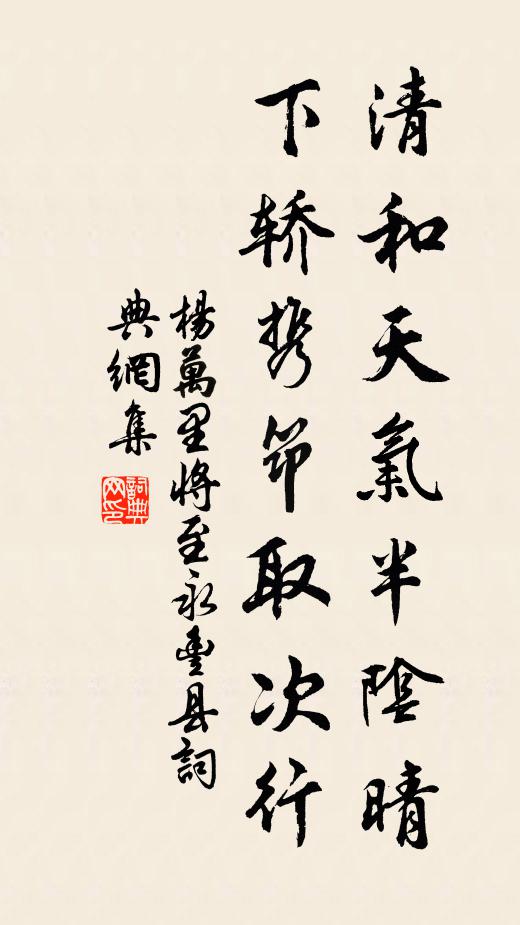 清和天氣半陰晴
下轿携筇取次行
楊萬里將至永豐县詞
典網集
詞典
网印